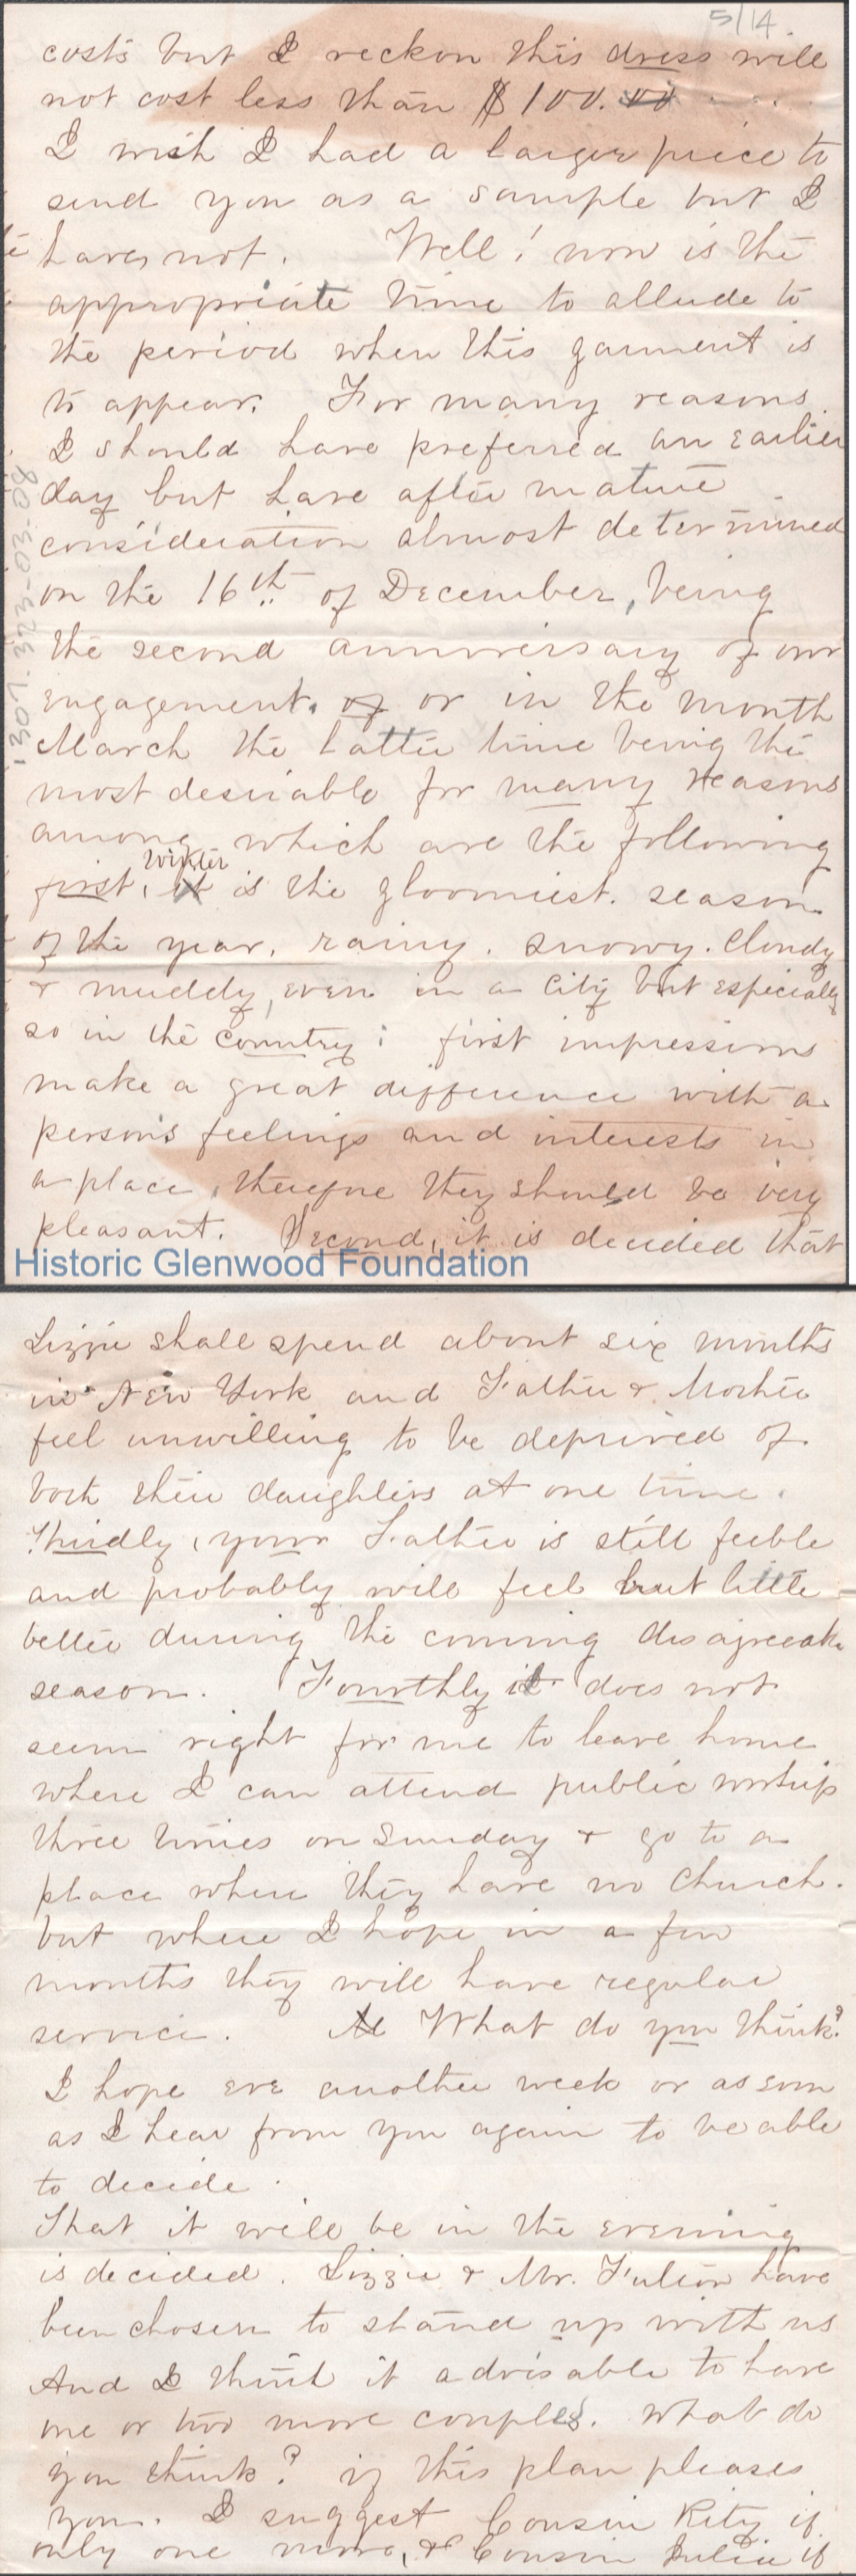 5/14.
costs but I reckon this dress will
not cost less than $100.00
I wish I had a larger piece to
send you as a sample but I
have not. Well! now is the
appropriate time to allude to
the period when this garment is
to appear. For many reasons
I should have preferred an earlier
day but have after mature
consideration almost determined
on the 16th of December, being
the second anniversary of our
engagement. of or in the month
March the latter time being the
most desirable for many reasons
among which are the following
first, it Winter is the gloomiest season
of the year, rainy, snowy. cloudy
& muddy, even in a city but especially
so in the country; first impressions
make a great difference with a
person's feelings and interests in
a place, therefore they should be very
pleasant. Second, it is decided that
Historic Glenwood Foundation
Lizzie shall spend about six months
in New York and Father & Mother
feel unwilling to be deprived of
both their daughters at one time.
Thirdly, your Father is still feeble
and probably will feel but little
better during the coming disagreeab
season. Fourthly it does not
seem right for me to leave home
where I can attend public worship
three times on Sunday & go to a
place where they have no church.
but where I hope in a few
months they will have regular
service. What do you think?
I hope ere another week or as soon
as I hear from you again to be able
to decide.
That it will be in the evening
is decided. Lizzie & Mr. Fulton have
been chosen to stand up with us
And I think it advisable to have
one or two more couples. What do
you think? if this plan pleases
you. I suggest Cousin Kity if
only one more, & Cousin Julia if